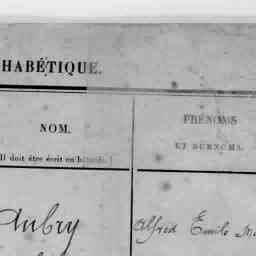 HABÉTIQUE.
NOM.
PRÉNOMS
Il doit être écrit en bâtarde.)
ET SURNOMS.
Aubry
Alfred Emile